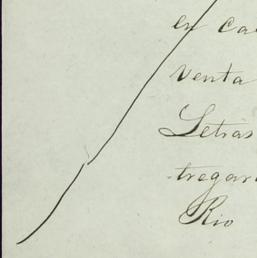 en ca
venta
Letras
tregar
Rio